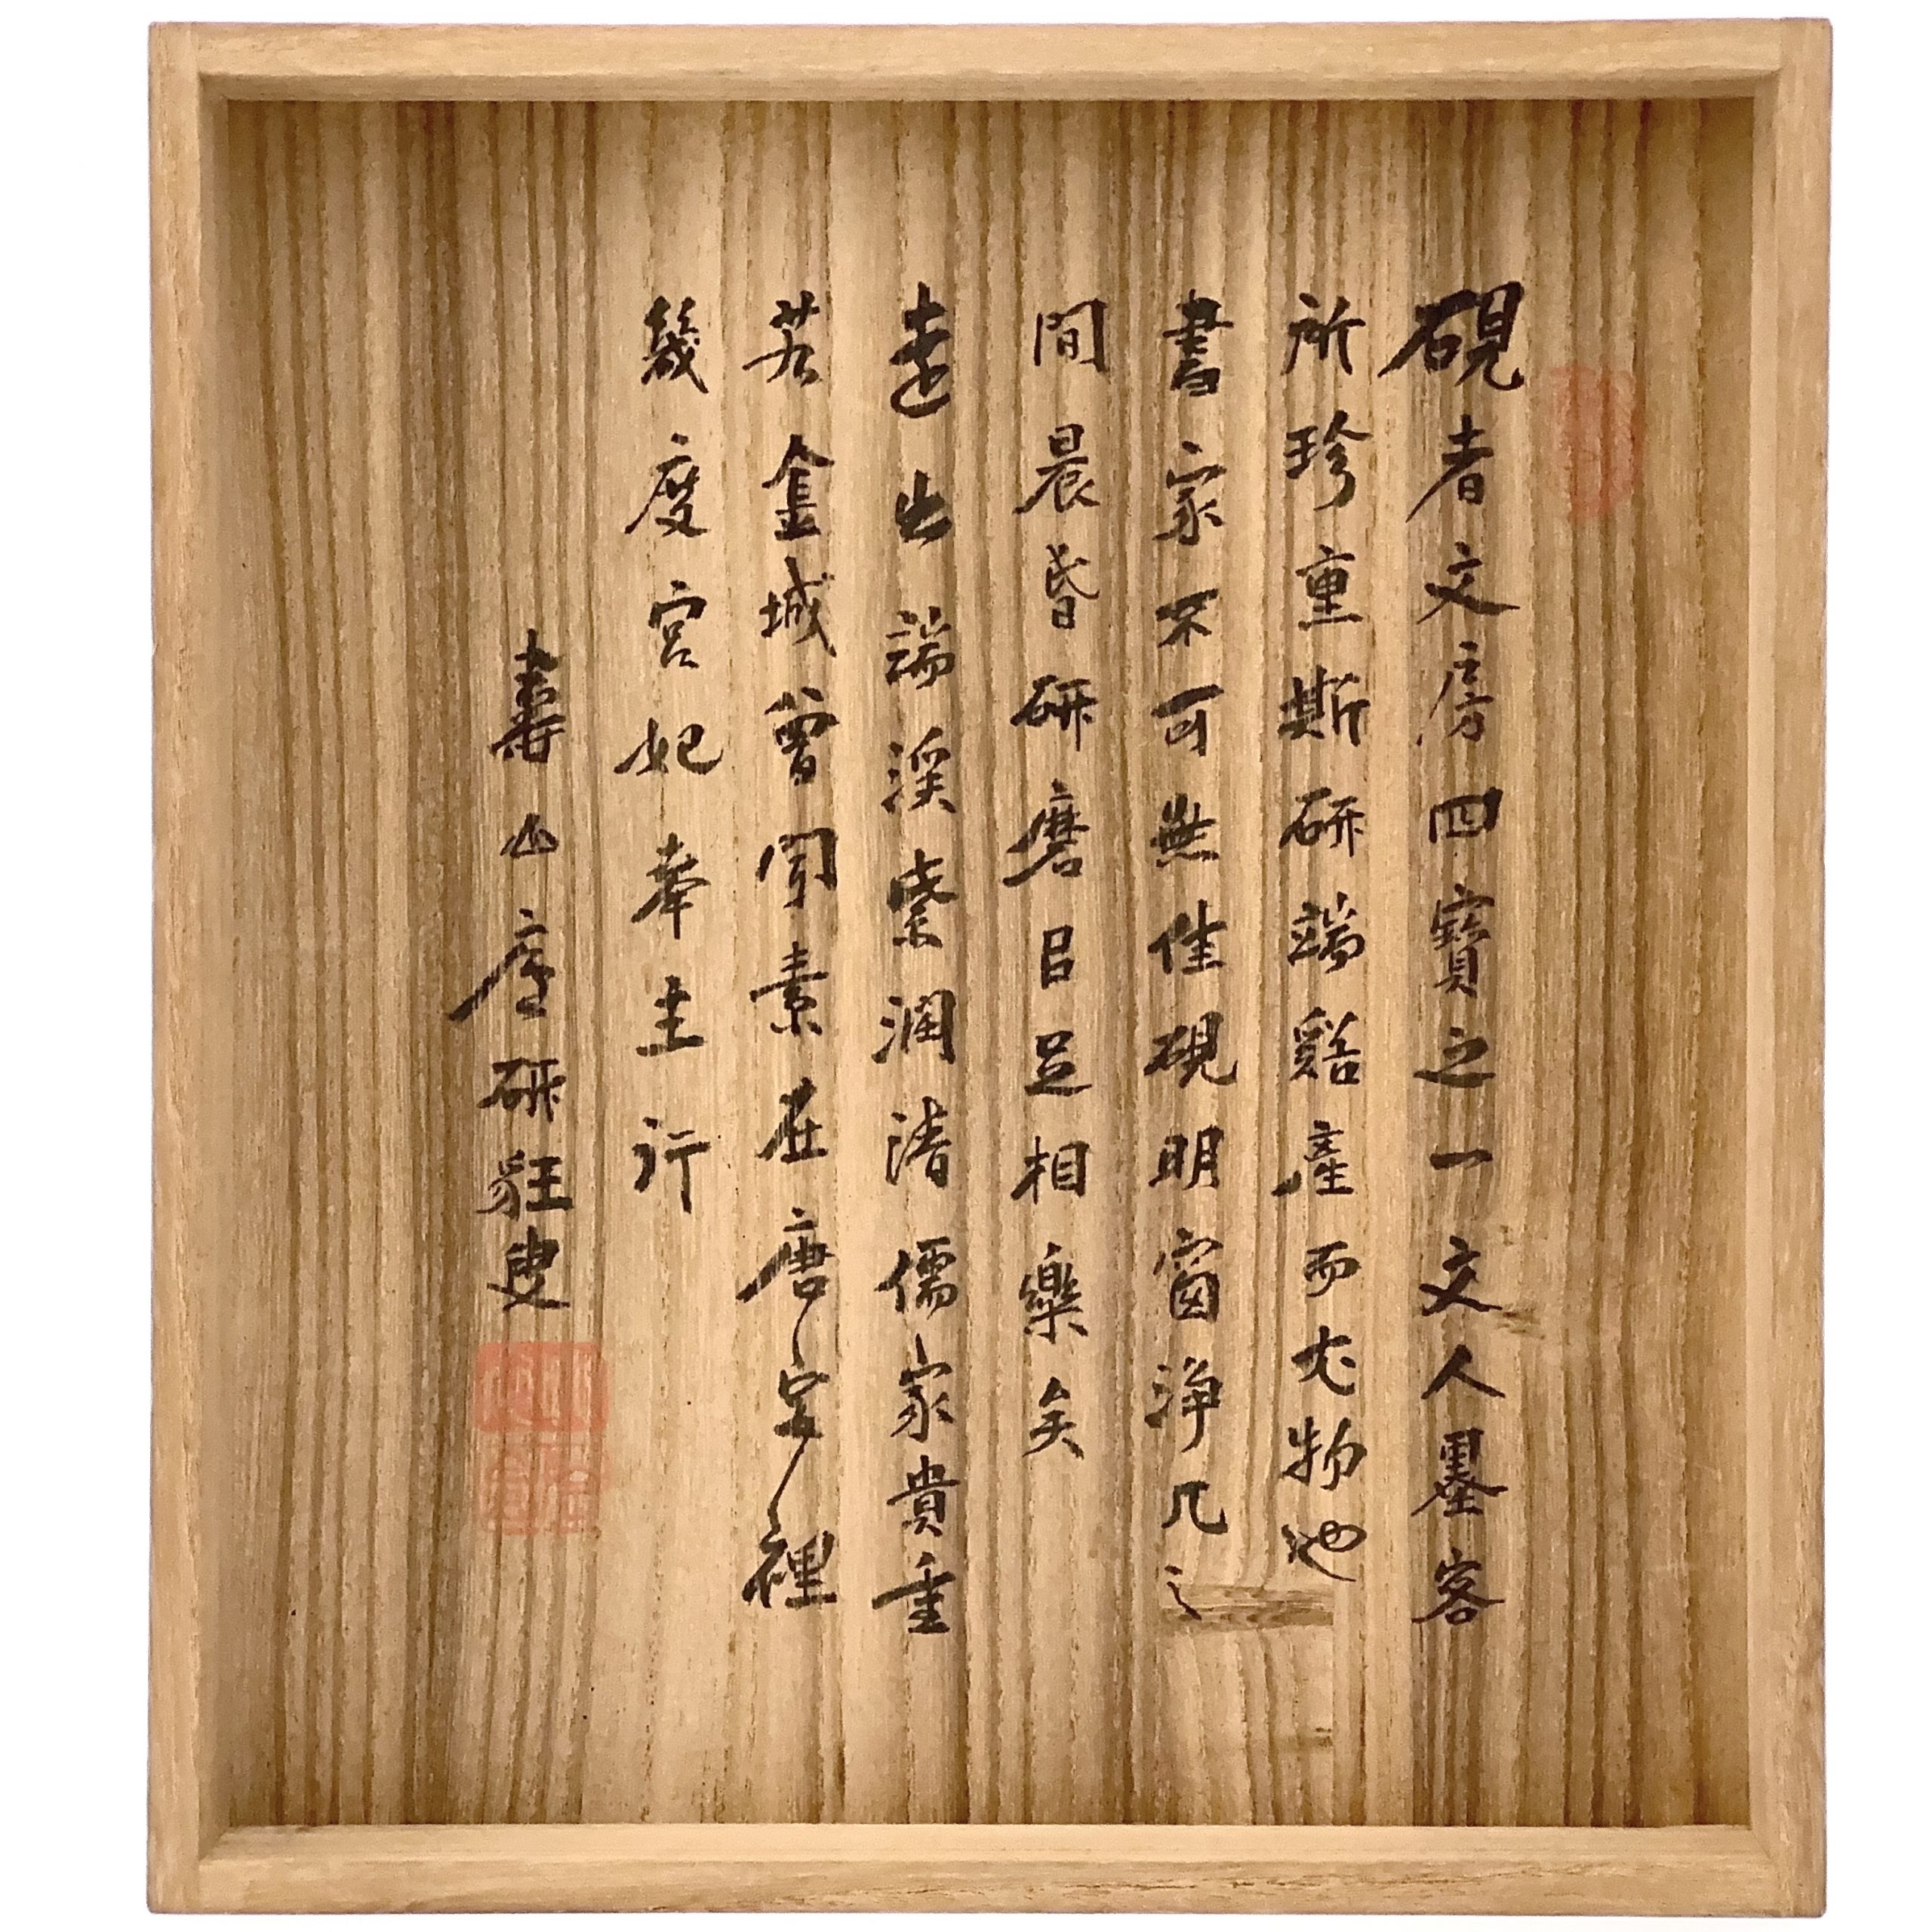 硯者文房四寶之一文人墨客
所珍重斯研端谿產而尤物也
書家不可無佳硯明窗淨几之
間晨昏研磨㠯足相樂矣
遠出端渓紫潤清儒家貴重
若金城曾聞素在唐字裡
幾度宮妃奉主行
壽山廬研狂叟